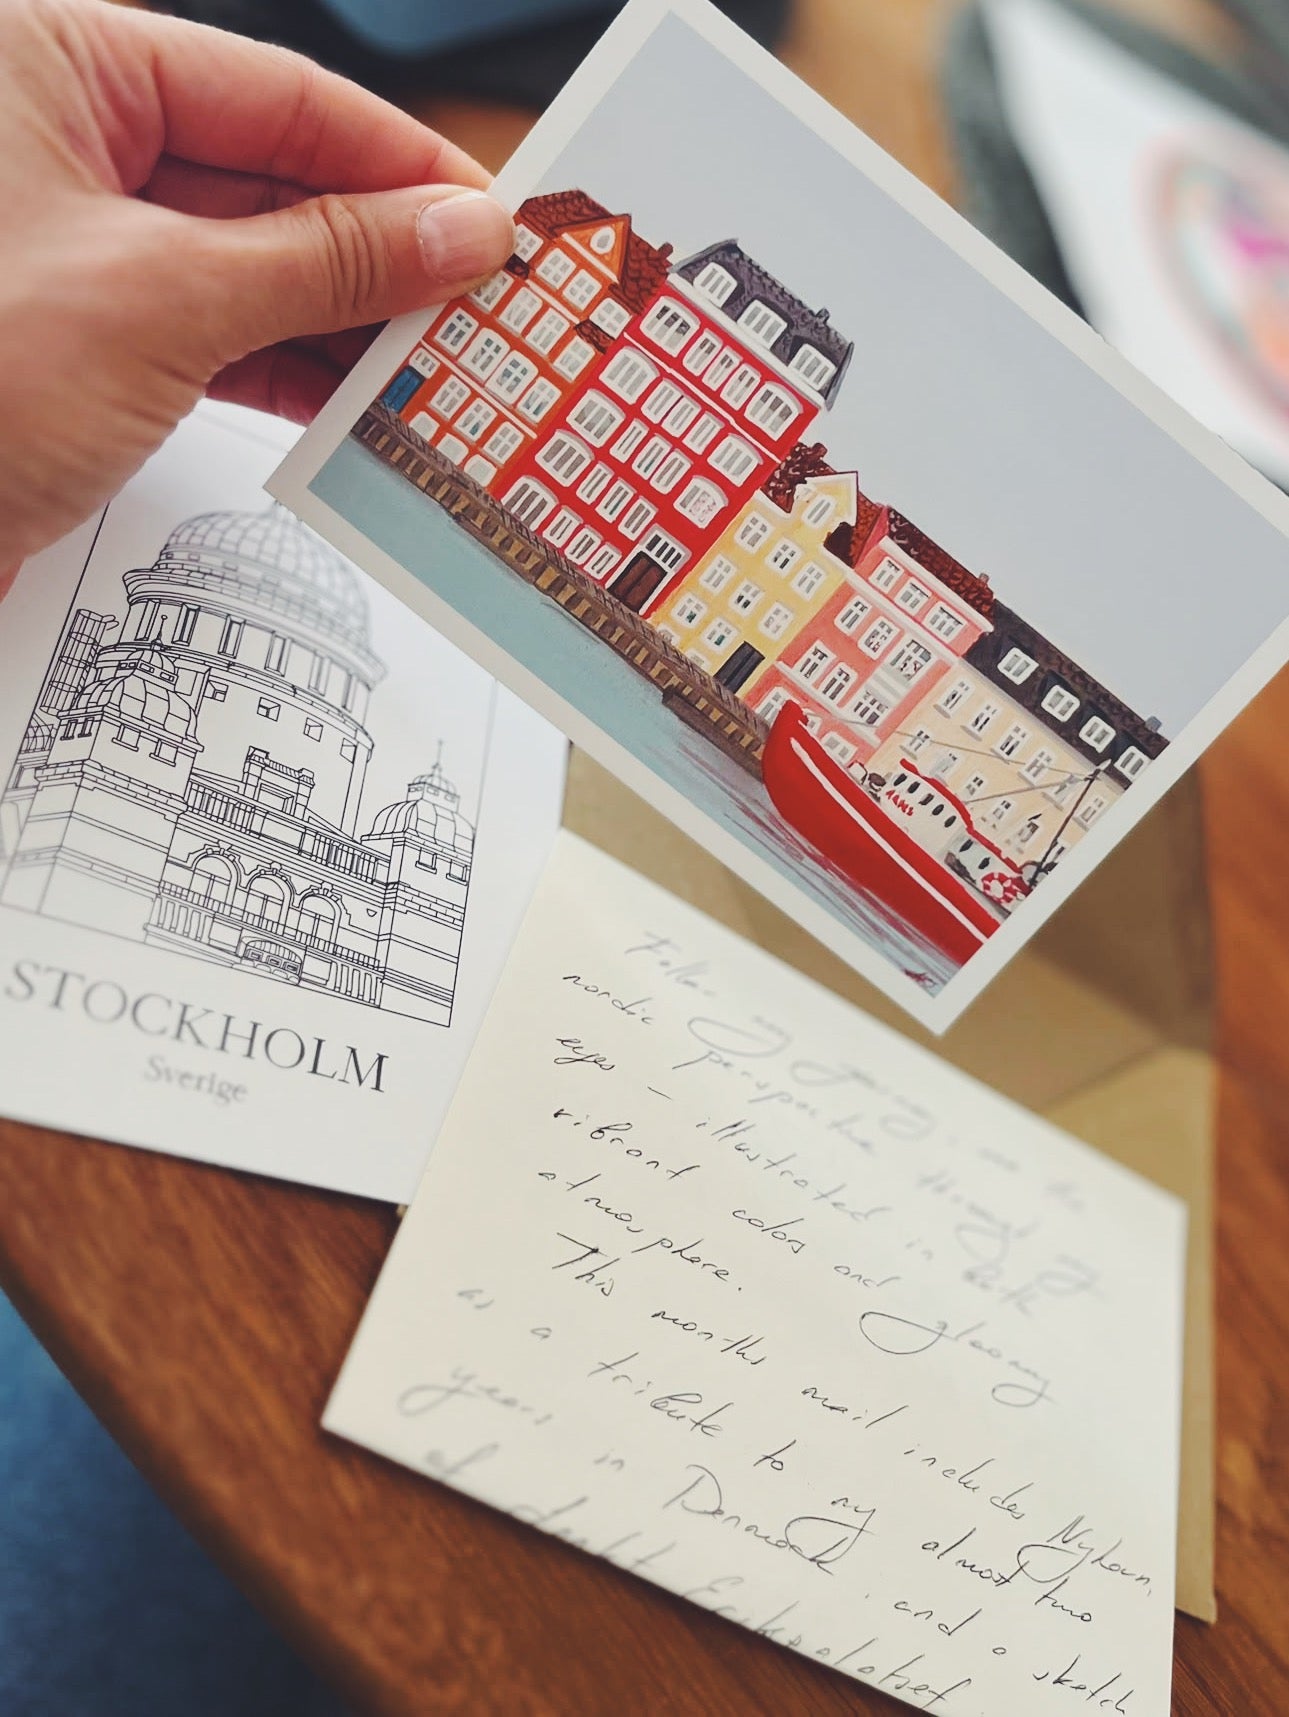 STOCKHOLM
Sverige
Follow my journey, see the
nordic perspective through my
eyes — illustrated in both
vibrant colors and gloomy
atmosphere.
This months mail includes Nyhavn,
as a tribute to my almost two
years in Denmark, and a sketch
of